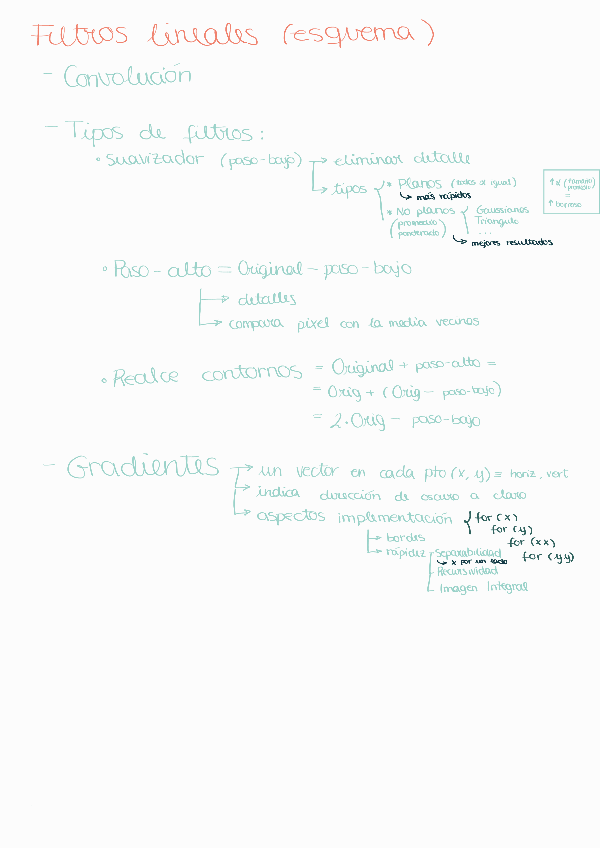 Filtros lineales (esquema)
- Convolución
- Tipos de filtros:
• suavizador (paso-bajo) → eliminar detalle
→ tipos { * Planos (todos al igual)
↳ más rápidos
* No planos { Gaussianos
(promedio ponderado) Triángulo
...
↳ mejores resultados
↑ x (tamaño promedio)
=
↑ borroso
• Paso-alto = Original - paso-bajo
→ detalles
→ compara pixel con la media vecinos
• Realce contornos = Original + paso-alto =
= Orig + (Orig - paso-bajo)
= 2·Orig - paso-bajo
- Gradientes → un vector en cada pto (x, y) ≡ horiz, vert
→ indica dirección de oscuro a claro
→ aspectos implementación { for (x)
for (y)
for (xx)
for (yy)
→ bordes
→ rapidez - Separabilidad
↳ x por un lado
- Recursividad
- Imagen Integral